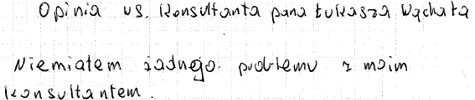 Opinia us. Konsultanta pana Łukasza Wąchała
Niemiałem żadnego problemu z moim
konsultantem.